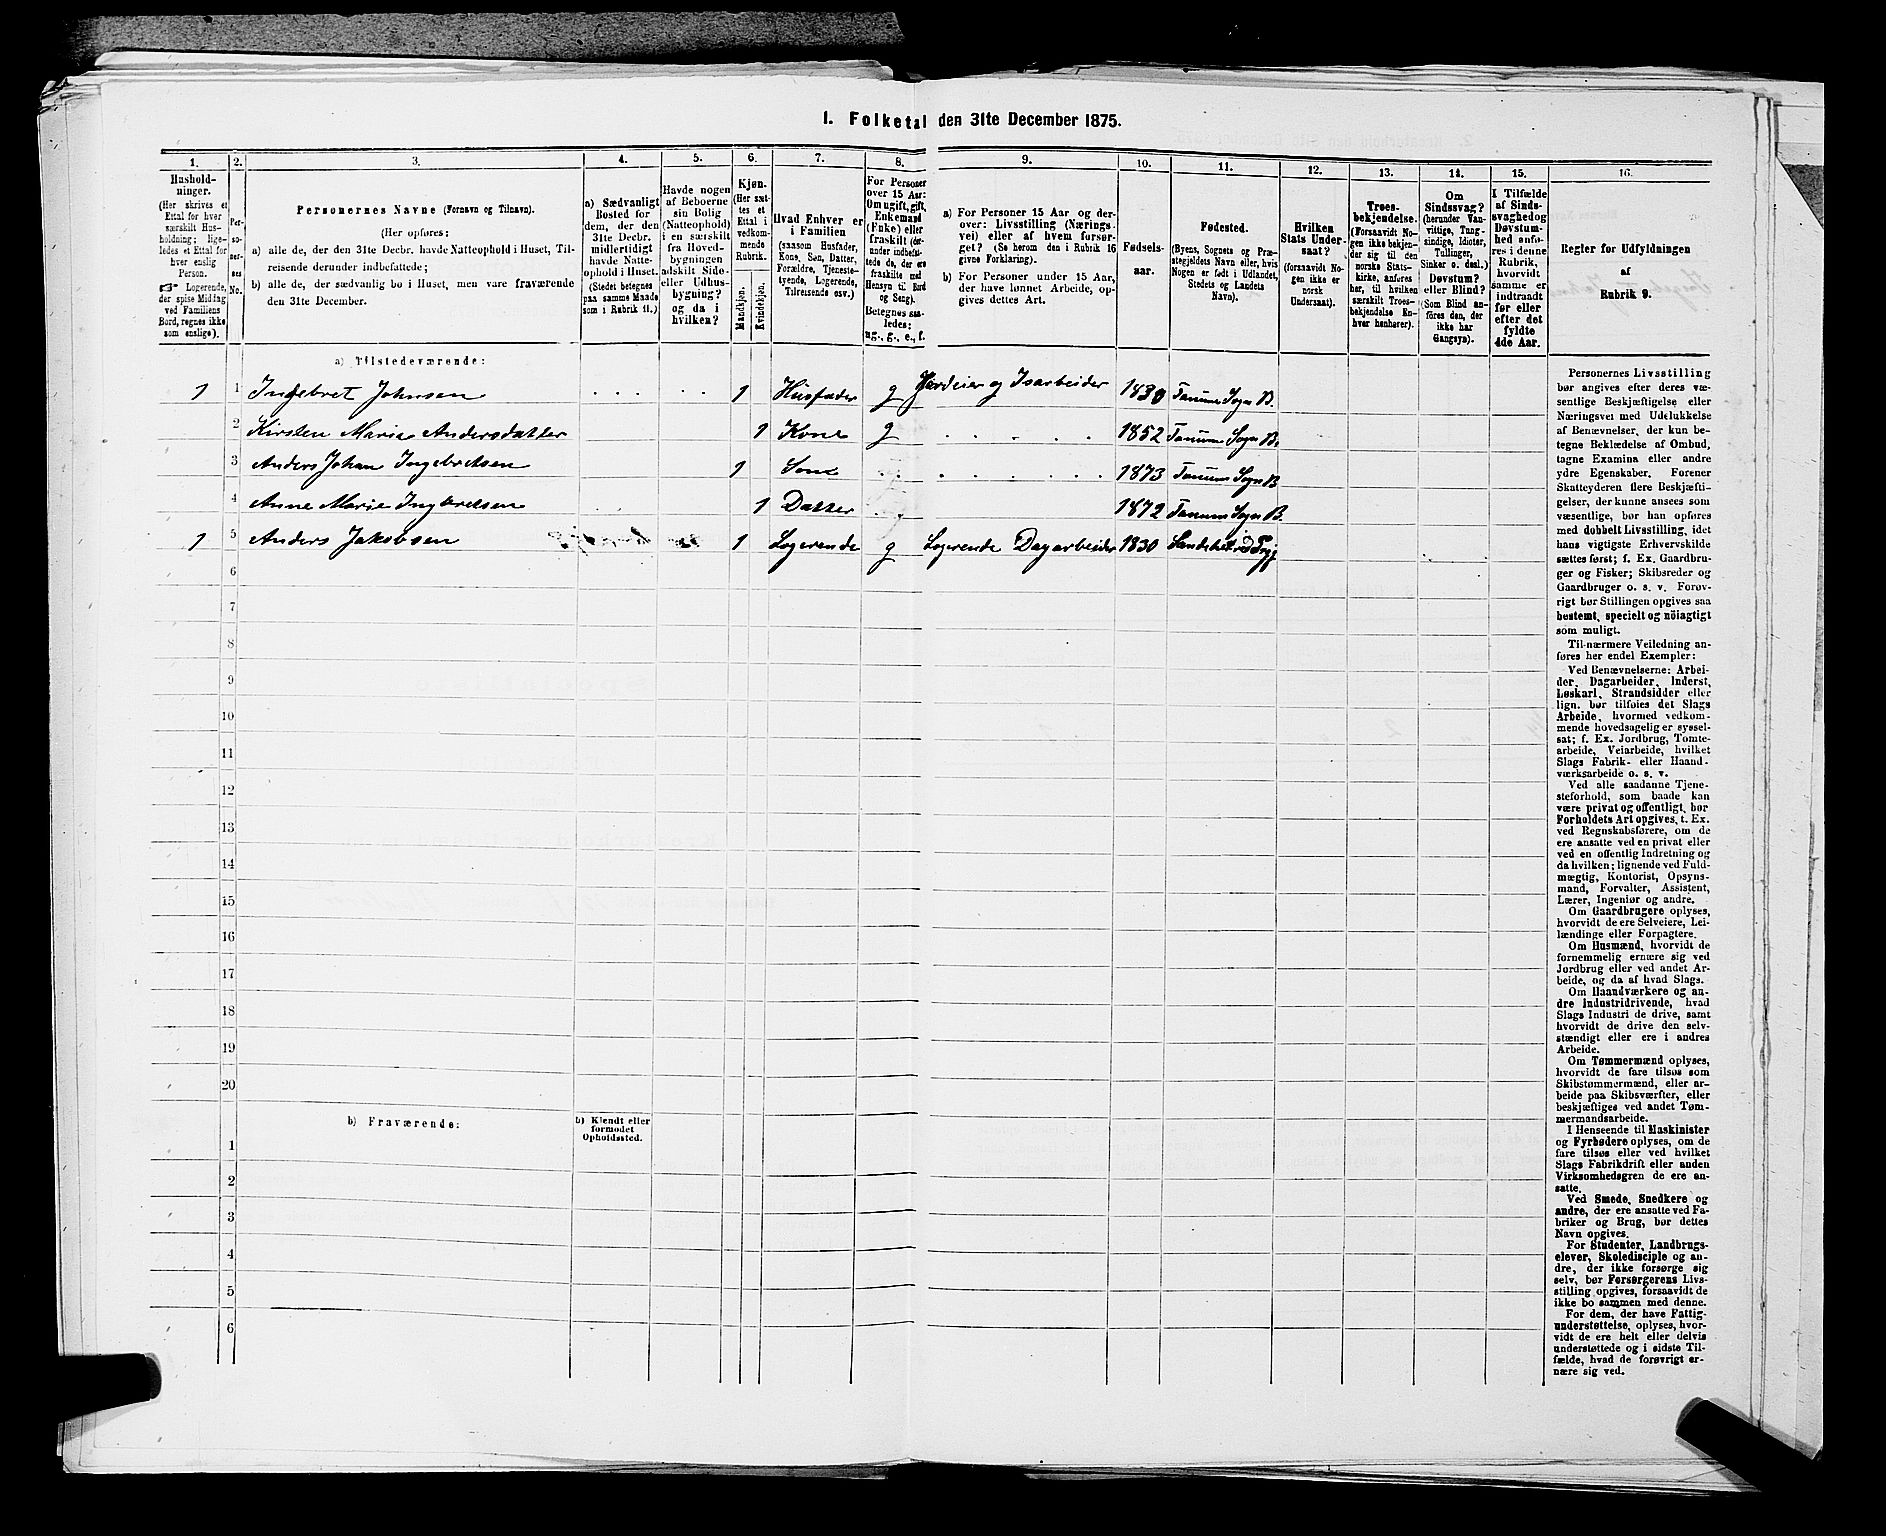 1. Folketal den 31te December 1875.
1. 2. 3. 4. 5. 6. 7. 8. 9. 10. 11. 12. 13. 14. 15. 16.
Hushold-
ninger.
(Her skrives et
Ettal for hver
særskilt Hus-
holdning; lige-
ledes et Ettal for
hver enslig
Person.
☞ Logerende,
der spise Middag
ved Familiens
Bord, regnes ikke
som enslige).
Per-
so-
ner-
nes
No.
Personernes Navne (Fornavn og Tilnavn).
(Her opføres:
a) alle de, der den 31te Decbr. havde Natteophold i Huset, Til-
reisende derunder indbefattede;
b) alle de, der sædvanlig bo i Huset, men vare fraværende
den 31te December.
a) Sædvanligt
Bosted for
dem, der den
31te Decbr.
midlertidigt
havde Natte-
ophold i Huset.
(Stedet betegnes
paa samme Maade
som i Rubrik 11.)
Havde nogen
af Beboerne
sin Bolig
(Natteophold)
i en særskilt
fra Hoved-
bygningen
adskilt Side-
eller Udhus-
bygning?
og da i
hvilken?
Kjøn.
(Her sæt-
tes et
Ettal i
vedkom-
mende
Rubrik.
Mandkjøn.
Kvindekjøn.
Hvad Enhver er
i Familien
(saasom Husfader,
Kone, Søn, Datter,
Forældre, Tjeneste-
tyende, Logerende,
Tilreisende osv.)
For Personer
over 15 Aar:
Om ugift, gift,
Enkemand
(Enke) eller
fraskilt (der-
under indbefat-
tede de, der ere
fraskilte med
Hensyn til Bord
og Seng).
Betegnes saa-
ledes:
ug., g., e., f.
a) For Personer 15 Aar og der-
over: Livsstilling (Nærings-
vei) eller af hvem forsør-
get? (Se herom den i Rubrik 16
givne Forklaring).
b) For Personer under 15 Aar,
der have lønnet Arbeide, op-
gives dettes Art.
Fødsels-
aar.
Fødested.
(Byens, Sognets og Præ-
stegjeldets Navn eller, hvis
Nogen er født i Udlandet,
Stedets og Landets
Navn).
Hvilken
Stats Under-
saat?
(forsaavidt No-
gen ikke er
norsk
Undersaat).
Troes-
bekjendelse.
(Forsaavidt No-
gen ikke bekjen-
der sig til den
norske Stats-
kirke, anføres
her, til hvilken
særskilt Troes-
bekjendelse En-
hver henhører).
Om
Sindssvag?
(herunder Van-
vittige, Tung-
sindige, Idioter,
Tullinger,
Sinker o. desl.)
Døvstum?
eller Blind?
(Som Blind an-
føres den, der
ikke har
Gangsyn).
I Tilfælde
af Sinds-
svaghed og
Døvstum-
hed anfø-
res i denne
Rubrik,
hvorvidt
samme er
indtraadt
før eller
efter det
fyldte
4de Aar.
Regler for Udfyldningen
af
Rubrik 9.
a) Tilstedeværende:
1 1 Ingebret Johnsen 1 Husfader g Gardeier og Isarbeider 1830 Tanum Sogn B.
2 Kirsten Marie Andersdatter 1 Kone g 1852 Tanum Sogn B.
3 Anders Johan Ingebretsen 1 Søn 1873 Tanum Sogn B
4 Anne Marie Ingbretsen 1 Datter 1872 Tanum Sogn B.
1 5 Anders Jakobsen 1 Logerende g Logerende Dagarbeider 1830
6
7
8
9
10
11
12
13
14
15
16
17
18
19
20
b) Fraværende:
b) Kjendt eller
formodet
Opholdssted.
1
2
3
4
5
6
Personernes Livsstilling
bør angives efter deres væ-
sentlige Beskjæftigelse eller
Næringsvei med Udelukkelse
af Benævnelser, der kun be-
tegne Beklædelse af Ombud,
tagne Examina eller andre
ydre Egenskaber. Forener
Skatteyderen flere Beskjæfti-
gelser, der kunne ansees som
væsentlige, bør han opføres
med dobbelt Livsstilling, idet
hans vigtigste Erhvervskilde
sættes først; f. Ex. Gaardbru-
ger og Fisker; Skibsreder og
Gaardbruger o. s. v. Forøv-
rigt bør Stillingen opgives saa
bestemt, specielt og nøiagtigt
som muligt.
Til nærmere Veiledning an-
føres her endel Exempler:
Ved Benævnelserne: Arbei-
der, Dagarbeider, Inderst,
Løskarl, Strandsidder eller
lign. bør tilføies det Slags
Arbeide, hvormed vedkom-
mende hovedsagelig er syssel-
sat; f. Ex. Jordbrug, Tomte-
arbeide, Veiarbeide, hvilket
Slags Fabrik- eller Haand-
værksarbeide o. s. v.
Ved alle saadanne Tjene-
steforhold, som baade kan
være privat og offentligt, bør
Forholdets Art opgives, t. Ex.
ved Regnskabsførere, om de
ere ansatte ved en privat eller
ved en offentlig Indretning og
da hvilken; lignende ved Fuld-
mægtig, Kontorist, Opsyns-
mand, Forvalter, Assistent,
Lærer, Ingeniør og andre.
Om Gaardbrugere oplyses,
hvorvidt de ere Selveiere, Lei-
lændinge eller Forpagtere.
Om Husmænd, hvorvidt de
fornemmelig ernære sig ved
Jordbrug eller ved andet Ar-
beide, og da af hvad Slags.
Om Haandværkere og an-
dre Industridrivende, hvad
Slags Industri de drive, samt
hvorvidt de drive den selv-
stændigt eller ere i andres
Arbeide.
Om Tømmermænd oplyses,
hvorvidt de fare tilsøs som
Skibstømmermænd, eller ar-
beide paa Skibsværfter, eller
beskjæftiges ved andet Tøm-
mermandsarbeide.
I Henseende til Maskinister
og Fyrbødere oplyses, om de
fare tilsøs eller ved hvilket
Slags Fabrikdrift eller anden
Virksomhedsgren de ere an-
satte.
Ved Smede, Snedkere og
andre, der ere ansatte ved Fa-
briker og Brug, bør dettes
Navn opgives.
For Studenter, Landbrugs-
elever, Skoledisciple og an-
dre, der ikke forsørge sig
selv, bør Forsørgerens Livs-
stilling opgives, forsaavidt de
ikke bo sammen med denne.
For dem, der have Fattig-
understøttelse, oplyses, hvor-
vidt de ere helt eller delvis
understøttede og i sidste Til-
fælde, hvad de forøvrigt er-
nære sig ved.